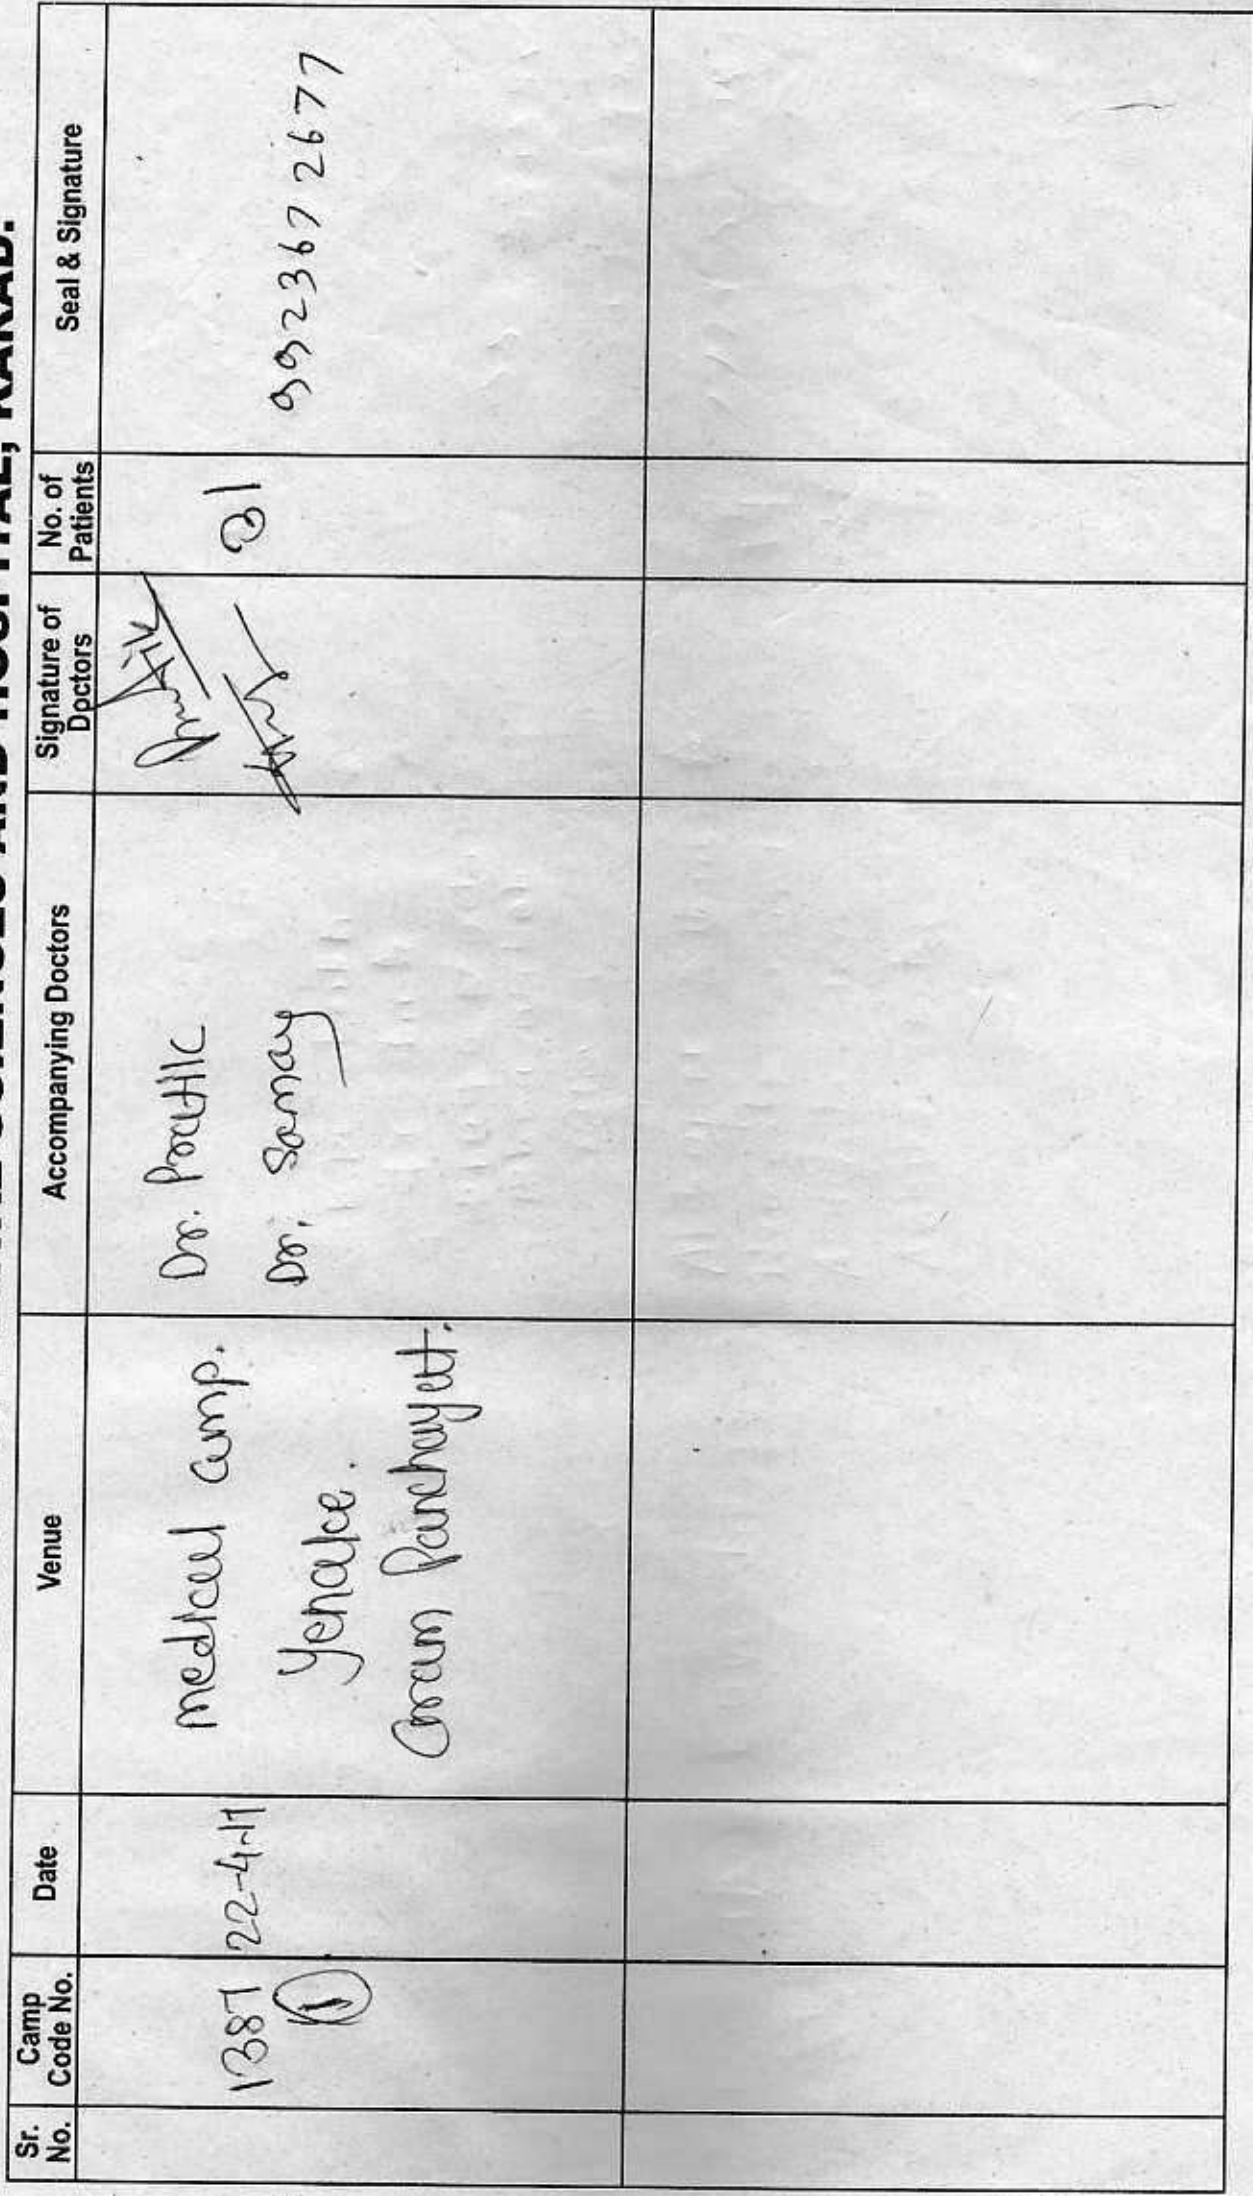 SCIENCES AND HOSPITAL, KARAD.
Sr. No.
Camp Code No.
Date
Venue
Accompanying Doctors
Signature of Doctors
No. of Patients
Seal & Signature
1387
1
22-4-17
medical camp.
Yenake.
Gram Panchayett.
Dr. Pratik
Dr. Samay
31
9923672677